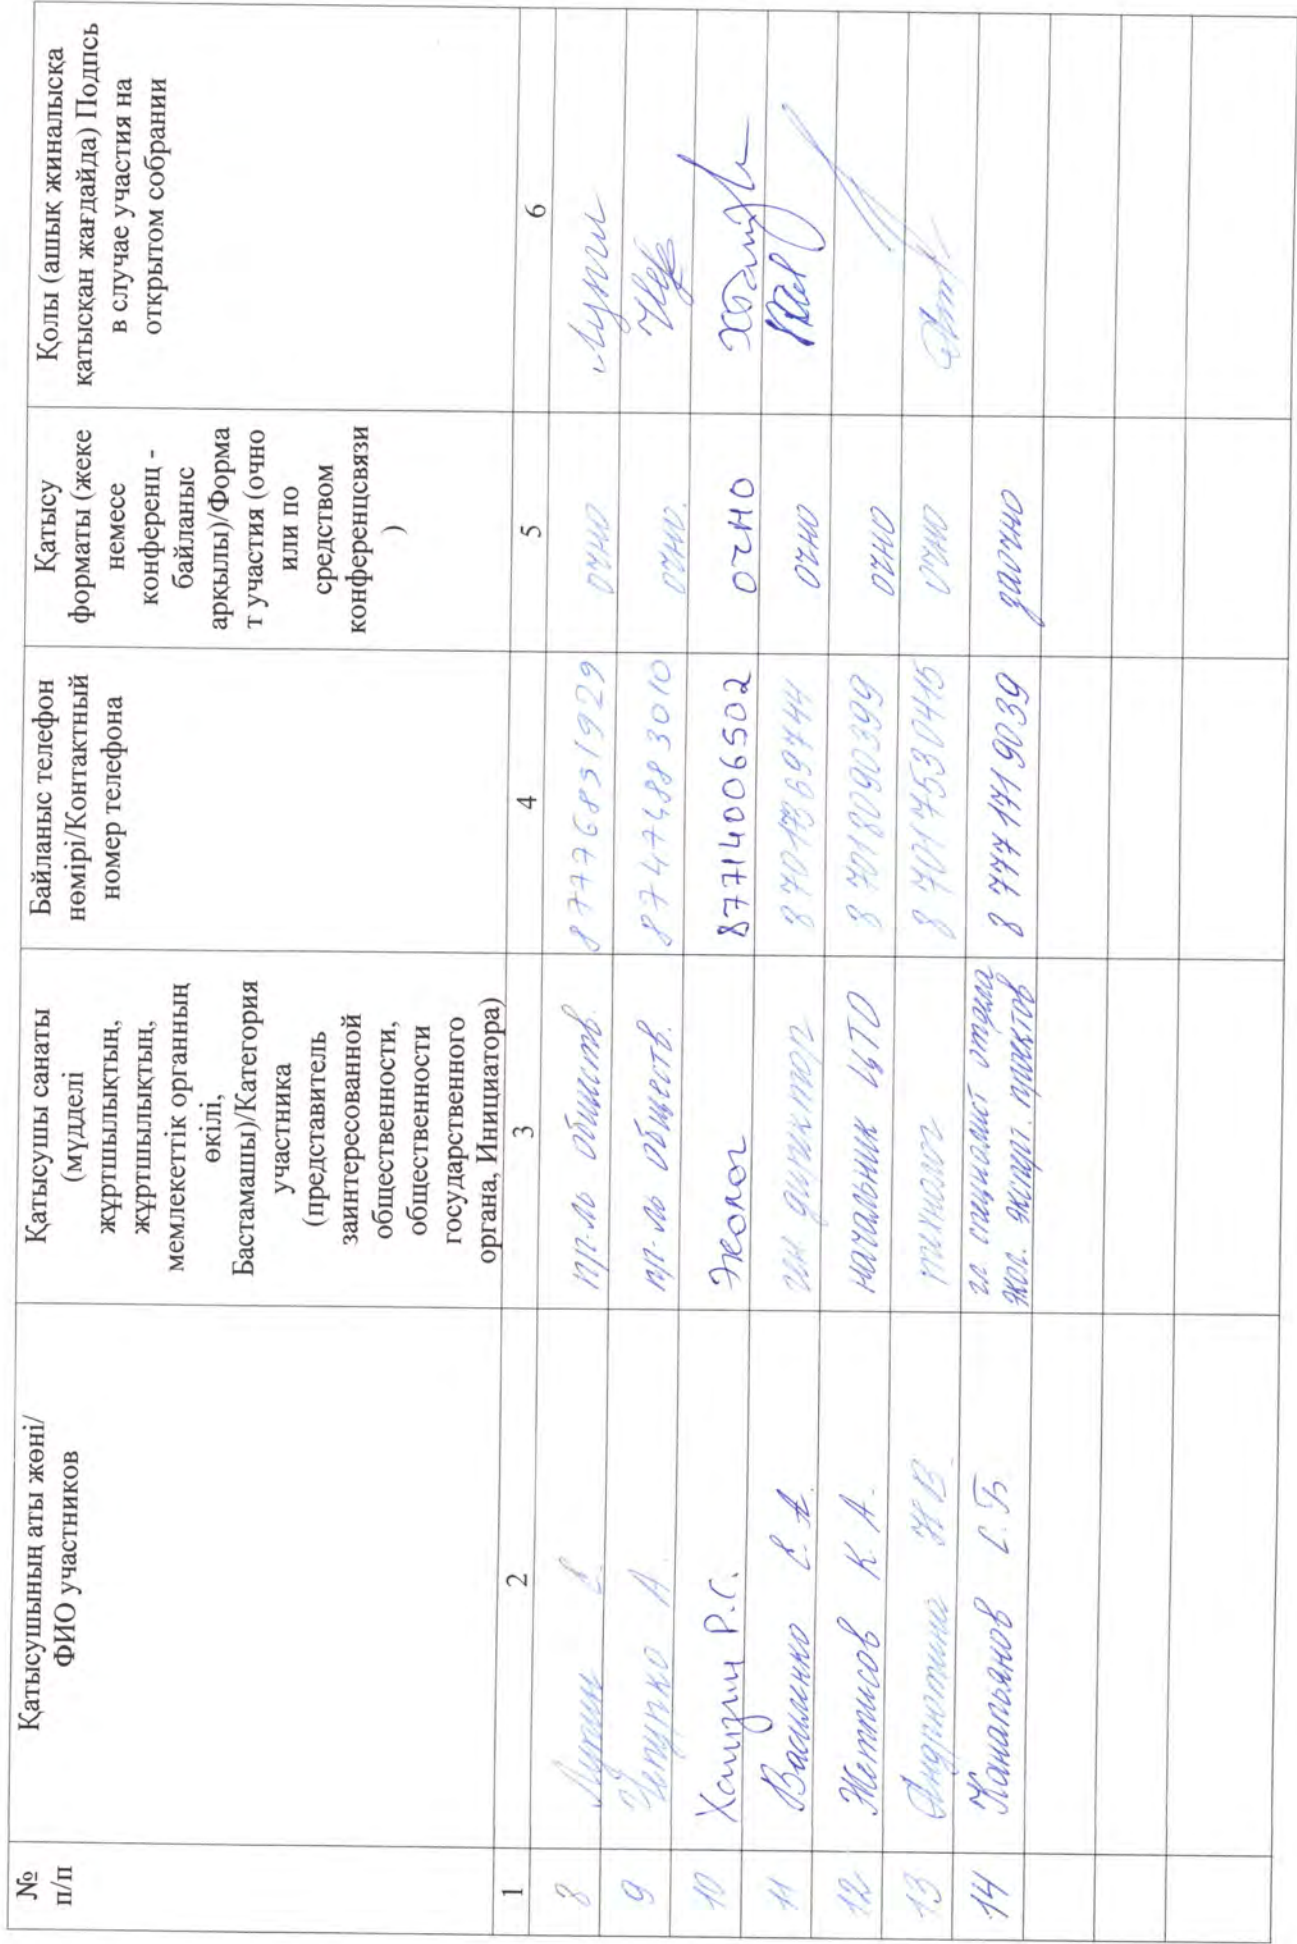 №
п/п
Қатысушының аты жөні/
ФИО участников
Қатысушы санаты
(мүдделі
жұртшылықтың,
жұртшылықтың,
мемлекеттік органның
өкілі,
Бастамашы)/Категория
участника
(представитель
заинтересованной
общественности,
общественности
государственного
органа, Инициатора)
Байланыс телефон
нөмірі/Контактный
номер телефона
Қатысу
форматы (жеке
немесе
конференц -
байланыс
арқылы)/Форма
т участия (очно
или по
средством
конференцсвязи
)
Қолы (ашық жиналысқа
қатысқан жағдайда) Подпсь
в случае участия на
открытом собрании
1 2 3 4 5 6
8 Лупин пр-ль обществ. 87776851929 очно
9 Чепурко А. пр-ль обществ. 87474883010 очно.
10 Р.С. Эколог 87714006502 очно
11 Василенко Е.А. ген директор 87017369744 очно
12 Жетписов К.А. начальник ЦТО 87018090399 очно
13 Н.В. технолог 87017530445 очно
14 Канапьянов С.Б. гл. специалист отдела 87771719039 заочно
экол. эксперт. проектов